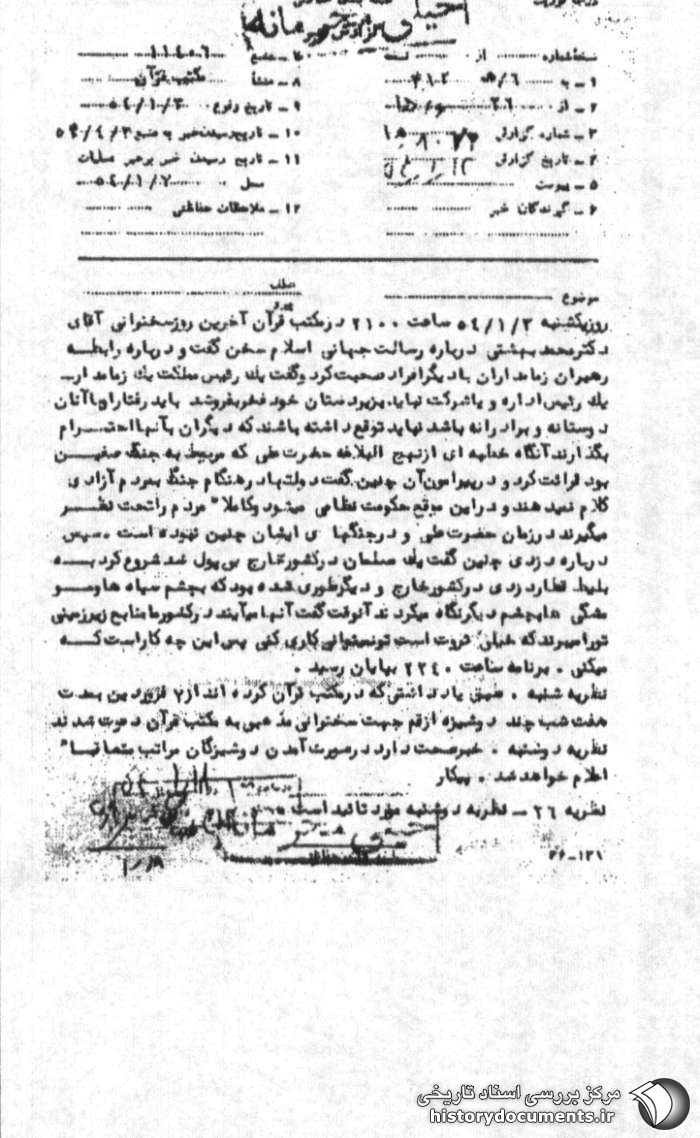 خیلی محرمانه
نسخه شماره از نسخه
۱ ـ به ۳۱۲
۲ ـ از ۲۶
۳ ـ شماره گزارش
۴ ـ تاریخ گزارش
۵ ـ پیوست
۶ ـ گیرندگان خبر
۷ ـ منبع ۱۱۴۵۶
۸ ـ منشأ مکتب قرآن
۹ ـ تاریخ وقوع ۵۴/۱/۳
۱۰ ـ تاریخ رسیدن خبر به منبع
۱۱ ـ تاریخ رسیدن خبر برهبر عملیات
محل ۵۴/۱/۷
۱۲ ـ ملاحظات حفاظتی
موضوع
روز یکشنبه ۵۴/۱/۳ ساعت ۲۱۰۰ در مکتب قرآن آخرین روز سخنرانی آقای
دکتر محمد بهشتی درباره رسالت جهانی اسلام سخن گفت و درباره رابطه
رهبران زمامداران با دیگر افراد صحبت کرد و گفت یک رئیس مملکت یک زمامدار ـ
یک رئیس اداره و یا شرکت نباید بزیردستان خود فخر بفروشد باید رفتار او با آنان
دوستانه و برادرانه باشد نباید توقع داشته باشند که دیگران بآنها احترام
بگذارند آنگاه خطبه ای از نهج البلاغه حضرت علی که مربوط به جنگ صفین
بود قرائت کرد و در پیرامون آن چنین گفت دولتها در هنگام جنگ بمردم آزادی
کلام نمیدهند و در این موقع حکومت نظامی میشود و کاملا" مردم را تحت نظر
میگیرند در زمان حضرت علی و در جنگهای ایشان چنین نبوده است . سپس
درباره دزدی چنین گفت یک مسلمان در کشور خارج بی پول شد شروع کرد به
بلیط قطار دزدی در کشور خارج و دیگر طوری شده بود که بچشم سیاه ها و مو
مشگی ها بچشم دیگر نگاه میکردند آنوقت گفت آنها میآیند در کشور ما منابع زیرزمینی
تو را میبرند که خیلی ثروت است تو نمیتوانی کاری کنی پس این چه کار است که
میکنی . برنامه ساعت ۲۲۴۰ بپایان رسید .
نظریه شنبه . طبق یادداشتی که در مکتب قرآن کرده اند از ۷ فروردین بمدت
هفت شب چند دوشیزه از قم جهت سخنرانی مذهبی به مکتب قرآن دعوت شدند
نظریه دوشنبه . خبر صحت دارد در صورت آمدن دوشیزگان مراتب متعاقبا"
اعلام خواهد شد . پیکار
نظریه ۲۶ ـ نظریه دوشنبه مورد تائید است
خیلی محرمانه
۲۶-۱۲۱
مرکز بررسی اسناد تاریخی
historydocuments.ir